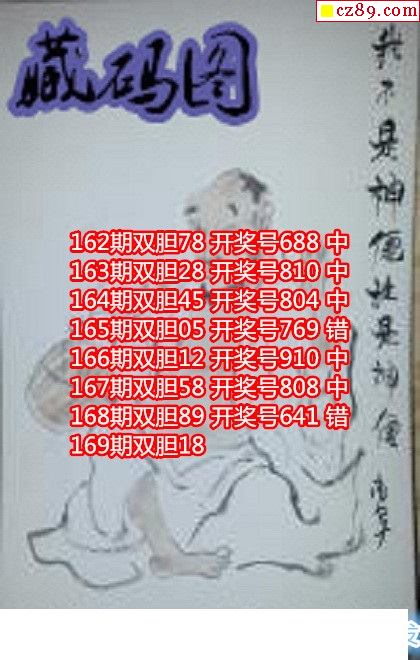 cz89.com
藏码图
162期双胆78 开奖号688 中
163期双胆28 开奖号810 中
164期双胆45 开奖号804 中
165期双胆05 开奖号769 错
166期双胆12 开奖号910 中
167期双胆58 开奖号808 中
168期双胆89 开奖号641 错
169期双胆18
我不是神仙谁是神仙